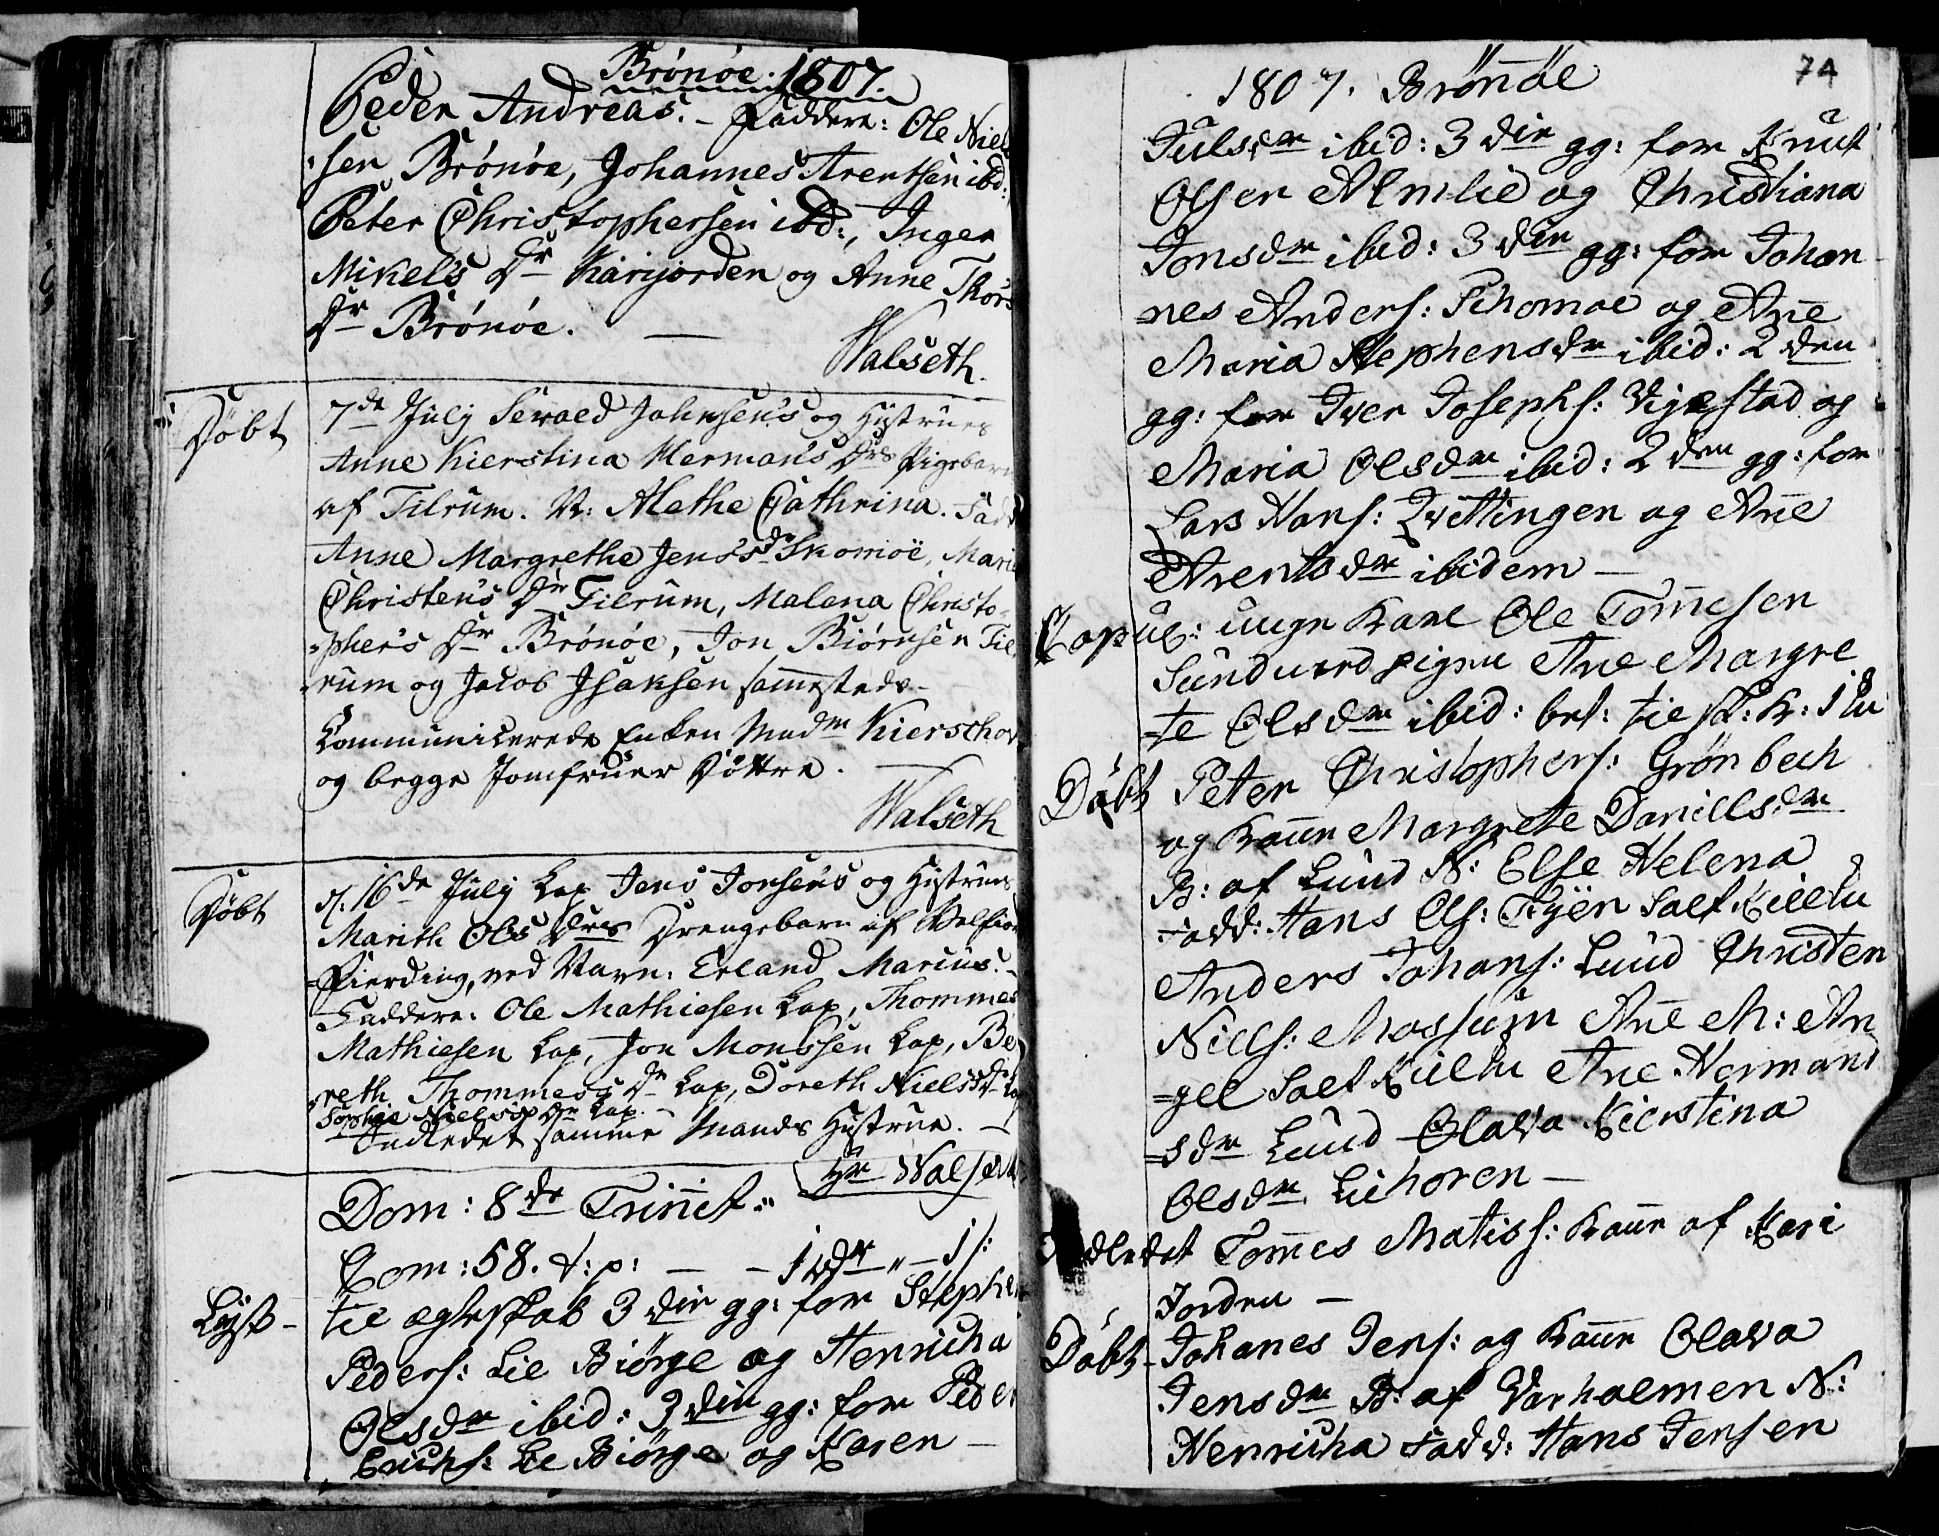 Brönöe. 1807.
Peder Andreas. - Faddere: Ole Niel
-sen Brönöe, Johannes Arentsen ibd:
Peter Christophersen ibd:, Inger
Mikels Dr Karijorden og Anne Thors
Dr Brönöe. —
Walseth.
Döbt
7de July Sevald Johnsen's og Hustrues
Anne Kierstina Herman's Drs Pigebarn
af Tilrum. N: Alethe Cathrina. Fadd
Anne Margrethe Jens's dr Skomoe, Mari
Christen's Dr Tilrum, Malena Christo-
-pher's Dr Brönöe, Jon Biörnsen Til
-rum og Jacob Isaksen sammesteds.
Kommunicerede Enken Madm Kierschow
og begge Jomfruer Döttre. —
Walseth
Döbt
d. 16de July Lap Jens Jonsen's og Hustrues
Marith Ols Drs Drengebarn af Velfior
-Fierding, ved Navn: Erland Marius. -
Faddere: Ole Mathiesen Lap, Thommes
Mathiesen Lap, Jon Monssen Lap, Be
reth Thommes's Dr Lap, Doreth Niels's Dr Lap
Sophie Niels's Dr Lap. -
Indledet samme Mands Hustrue. -
Hr Walseth
Dom: 8de Trinit:
Com: 58. t: p: — - 1 vdr „ - 1 s:
Lyst -
til ægteskab 3die gg: for Stephen
Peders: Lil Biörge og Henricha
Olsdr ibid: 3die gg: for Peder
Erichs: Lil Biörge og Karen —
1807. Brönöe
74
Julsdr ibid: 3die gg: for Knut
Olsen Almlie og Christiana
Jonsdr ibid: 3die gg: for Johan
-nes Anders: Tihomoe og Ane
Maria Stephensdr ibid: 2den
gg: for Iver Josephs: Vigestad og
Maria Olsdr ibid: 2den gg: for
Lars Hans: Qvittingen og Ane
Arentsdr ibidem —
Copul: unge Karl Ole Tomesen
Sund og pigen Ane Margre
-te Olsdr ibid: bet: til sk: K: 18
Döbt Peter Christophers: Grönbech
og Kaane Margrete Daniellsdr
B: af Lund N: Else Helena
Fadd: Hans Ols: Tyën Salt
Anders Johans: Lund Christen
Niells: Mossum Ane M: An
-gel Salt Ane Hermans
-sdr Lund Olava Kierstina
Olsdr Lilhoren —
Indledet Tomes Matiss: Kaane af Kari
Jorden —
Döbt - Johanes Jens: og Kaane Olava
Jensdr B: af Varholmen N:
Henricha Fadd: Hans Jensen